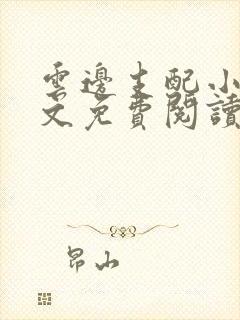 雲邊主配小
文免費閱讀
昂山